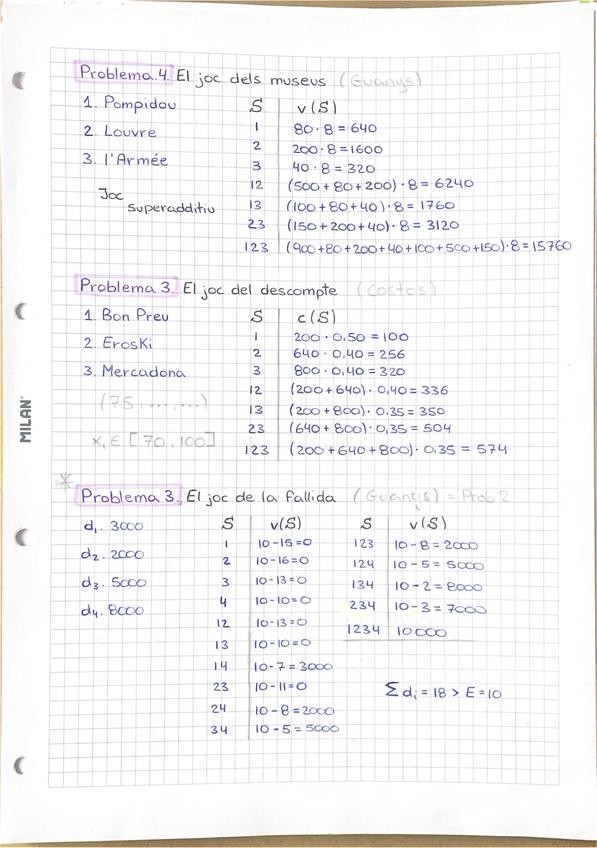 Problema 4. El joc dels museus (Guanys)
1. Pompidou
2. Louvre
3. l'Armée
Joc
superadditiu
S v(S)
1 80·8 = 640
2 200·8 = 1600
3 40·8 = 320
12 (500+80+200)·8 = 6240
13 (100+80+40)·8 = 1760
23 (150+200+40)·8 = 3120
123 (900+80+200+40+100+500+150)·8 = 15760
Problema 3. El joc del descompte (Costos)
1. Bon Preu
2. Eroski
3. Mercadona
(75, ..., ...)
x₁ ∈ [70, 100]
S c(S)
1 200·0,50 = 100
2 640·0,40 = 256
3 800·0,40 = 320
12 (200+640)·0,40 = 336
13 (200+800)·0,35 = 350
23 (640+800)·0,35 = 504
123 (200+640+800)·0,35 = 574
MILAN
* Problema 3. El joc de la fallida (Guanys) = Prob 2
d₁. 3000
d₂. 2000
d₃. 5000
d₄. 8000
S v(S)
1 10-15=0
2 10-16=0
3 10-13=0
4 10-10=0
12 10-13=0
13 10-10=0
14 10-7=3000
23 10-11=0
24 10-8=2000
34 10-5=5000
S v(S)
123 10-8=2000
124 10-5=5000
134 10-2=8000
234 10-3=7000
1234 10000
Σdᵢ = 18 > E = 10